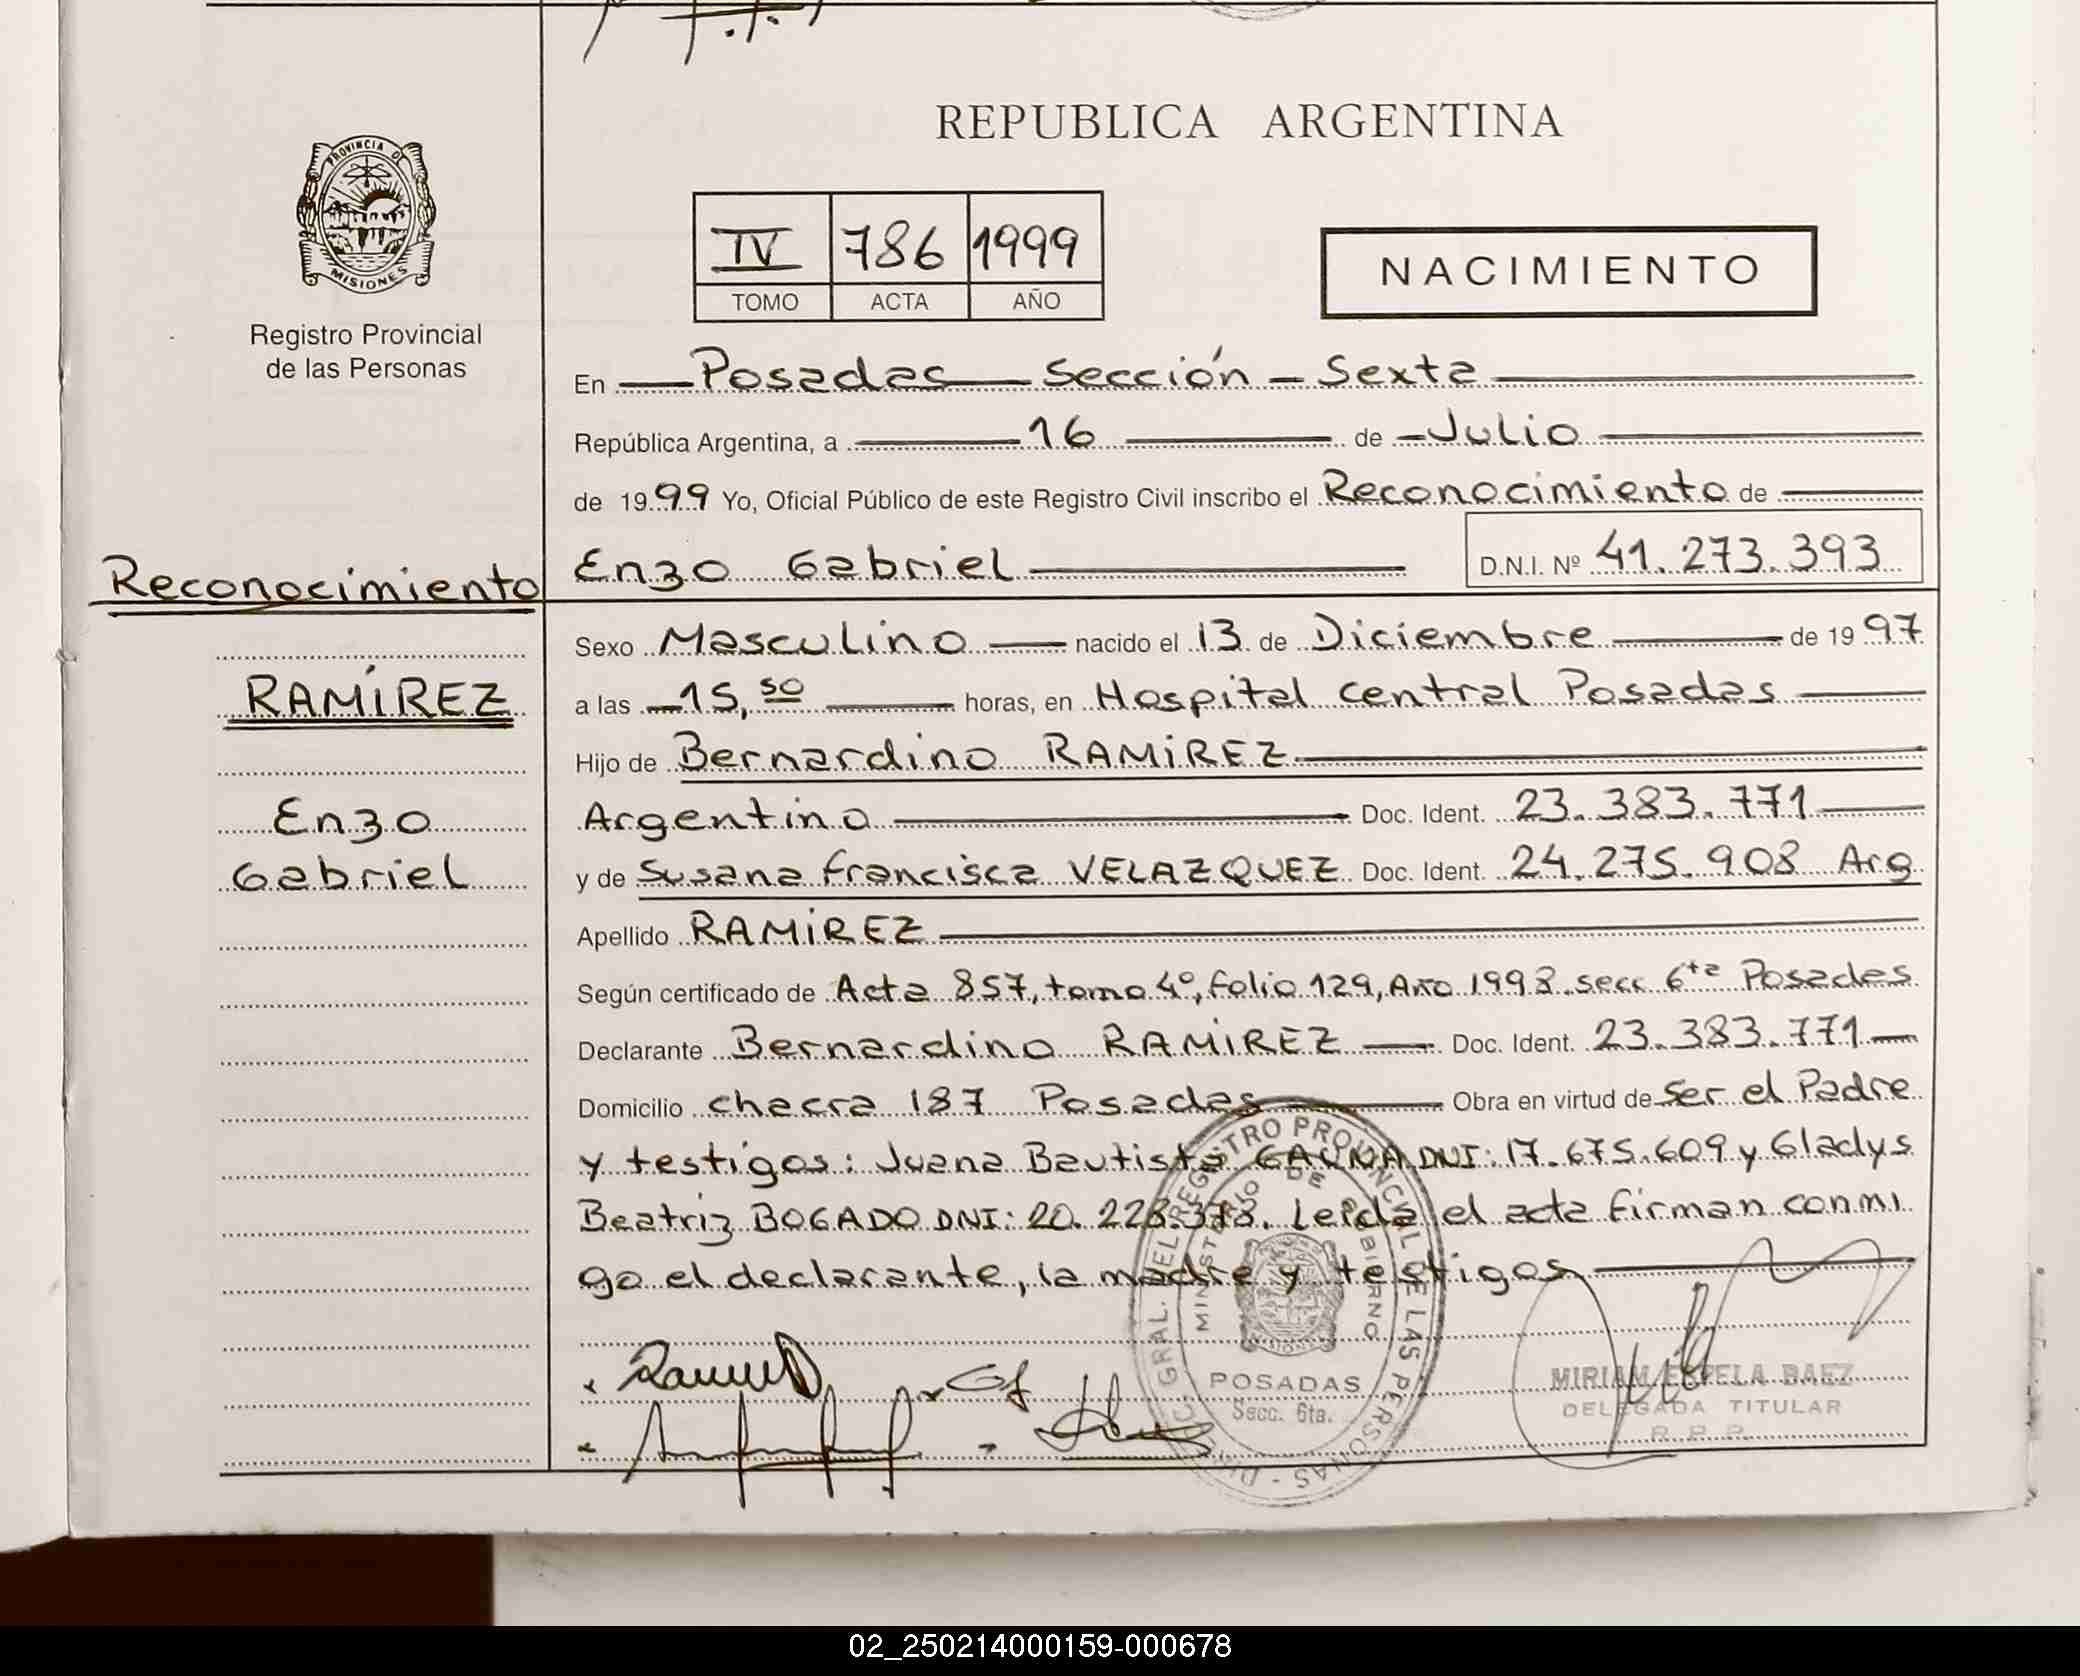 REPUBLICA ARGENTINA
PROVINCIA DE
MISIONES
Registro Provincial
de las Personas
IV 786 1999
TOMO ACTA AÑO
NACIMIENTO
En Posadas Sección - Sexta
República Argentina, a 16 de Julio
de 1999 Yo, Oficial Público de este Registro Civil inscribo el Reconocimiento de
Enzo Gabriel D.N.I. Nº 41.273.393
Reconocimiento
RAMÍREZ
Enzo
Gabriel
Sexo Masculino nacido el 13 de Diciembre de 1997
a las 15,50 horas, en Hospital Central Posadas
Hijo de Bernardino RAMÍREZ
Argentino Doc. Ident. 23.383.771
y de Susana Francisca VELAZQUEZ Doc. Ident. 24.275.908 Arg
Apellido RAMÍREZ
Según certificado de Acta 857, tomo 4º, folio 129, Año 1998. secc 6ta Posadas
Declarante Bernardino RAMÍREZ Doc. Ident. 23.383.771
Domicilio chacra 187 Posadas Obra en virtud de ser el Padre
y testigos: Juana Bautista GAUNA DNI: 17.675.609 y Gladys
Beatriz BOGADO DNI: 20.228.378. Leída el acta firman conmi
go el declarante, la madre y testigos
GRAL. DEL REGISTRO PROVINCIAL DE LAS PERSONAS
MINISTERIO DE GOBIERNO
MISIONES
POSADAS
Secc. 6ta.
MIRIAM ESTELA BAEZ
DELEGADA TITULAR
R. P. P.
02_250214000159-000678